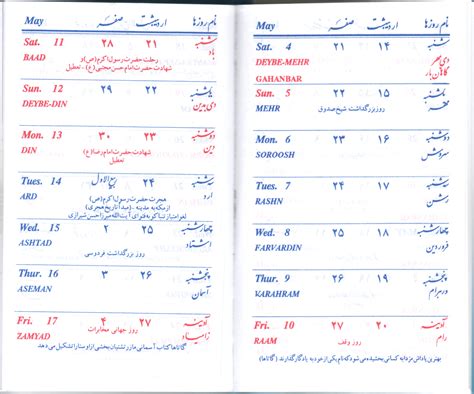 نام روزها اردیبهشت صفر May
شنبه ۱۴ ۲۱ Sat. 4
دی‌بمهر DEYBE-MEHR
گاهان‌بار GAHANBAR
یکشنبه ۱۵ ۲۲ Sun. 5
مهر روز بزرگداشت شیخ صدوق MEHR
دوشنبه ۱۶ ۲۳ Mon. 6
سروش SOROOSH
سه‌شنبه ۱۷ ۲۴ Tues. 7
رشن RASHN
چهارشنبه ۱۸ ۲۵ Wed. 8
فروردین FARVARDIN
پنجشنبه ۱۹ ۲۶ Thur. 9
ورهرام KARAHRAM
آدینه ۲۰ ۲۷ Fri. 10
رام روز وقف RAAM
بهترین پاداش مزدا به کسانی بخشیده می‌شود که نام یکی از خود به یادگار گذارند (گاتاها)
نام روزها اردیبهشت صفر May
شنبه ۲۱ ۲۸ Sat. 11
باد رحلت حضرت رسول اکرم (ص) و BAAD
شهادت حضرت امام حسن مجتبی (ع) - تعطیل
یکشنبه ۲۲ ۲۹ Sun. 12
دی‌بدین DEYBE-DIN
دوشنبه ۲۳ ۳۰ Mon. 13
دین شهادت حضرت امام رضا (ع) DIN
تعطیل
سه‌شنبه ۲۴ ربیع‌الاول Tues. 14
ارد هجرت حضرت رسول اکرم (ص) ARD
از مکه به مدینه - (مبدأ تاریخ هجری)
لغو امتیاز تنباکو به فتوای آیت‌الله میرزا حسن شیرازی
چهارشنبه ۲۵ ۲ Wed. 15
اشتاد روز بزرگداشت فردوسی ASHTAD
پنجشنبه ۲۶ ۳ Thur. 16
آسمان ASEMAN
آدینه ۲۷ ۴ Fri. 17
زامیاد روز جهانی مخابرات ZAMYAD
گاتاها کتاب آسمانی ما زرتشتیان بخشی از اوستا را تشکیل می‌دهد